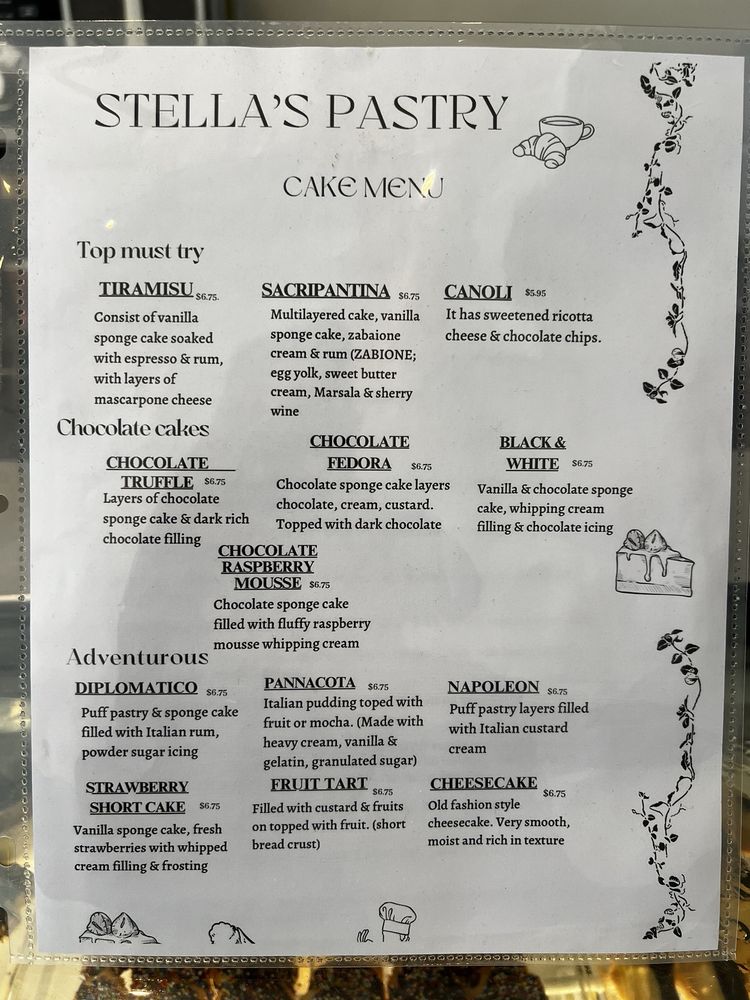 STELLA'S PASTRY
CAKE MENU
Top must try
TIRAMISU $6.75.
Consist of vanilla
sponge cake soaked
with espresso & rum,
with layers of
mascarpone cheese
SACRIPANTINA $6.75
Multilayered cake, vanilla
sponge cake, zabaione
cream & rum (ZABIONE;
egg yolk, sweet butter
cream, Marsala & sherry
wine
CANOLI $5.95
It has sweetened ricotta
cheese & chocolate chips.
Chocolate cakes
CHOCOLATE
TRUFFLE $6.75
Layers of chocolate
sponge cake & dark rich
chocolate filling
CHOCOLATE
FEDORA $6.75
Chocolate sponge cake layers
chocolate, cream, custard.
Topped with dark chocolate
BLACK &
WHITE $6.75
Vanilla & chocolate sponge
cake, whipping cream
filling & chocolate icing
CHOCOLATE
RASPBERRY
MOUSSE $6.75
Chocolate sponge cake
filled with fluffy raspberry
mousse whipping cream
Adventurous
DIPLOMATICO $6.75
Puff pastry & sponge cake
filled with Italian rum,
powder sugar icing
PANNACOTA $6.75
Italian pudding toped with
fruit or mocha. (Made with
heavy cream, vanilla &
gelatin, granulated sugar)
NAPOLEON $6.75
Puff pastry layers filled
with Italian custard
cream
STRAWBERRY
SHORT CAKE $6.75
Vanilla sponge cake, fresh
strawberries with whipped
cream filling & frosting
FRUIT TART $6.75
Filled with custard & fruits
on topped with fruit. (short
bread crust)
CHEESECAKE $6.75
Old fashion style
cheesecake. Very smooth,
moist and rich in texture